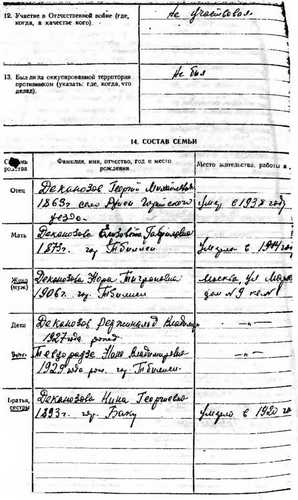 12. Участие в Отечественной войне (где, когда, в качестве кого)
Не участвовал.
13. Был ли на оккупированной территории противником (указать: где, когда, что делал).
Не был
14. СОСТАВ СЕМЬИ
родства
Фамилия, имя, отчество, год и место рождения
Место жительства, работы и
Отец
Деканозов Георгий
1863г. село
уезда.
умер в 1938 году
Мать
Деканозова Елизавета
1873г. гор Тбилиси
Умерла в 1944
Жена (муж)
Деканозова Нора Тиграновна
1906г. гор Тбилиси
Москва, ул
дом N 9
Дети
Деканозов Реджинальд
1927 года рожд
— " —
Нана Владимировна
1929 года рож. гор Тбилиси.
— " —
Братья, сестры
Деканозова Нина Георгиевна
1893г. гор. Баку
умерла в 1920